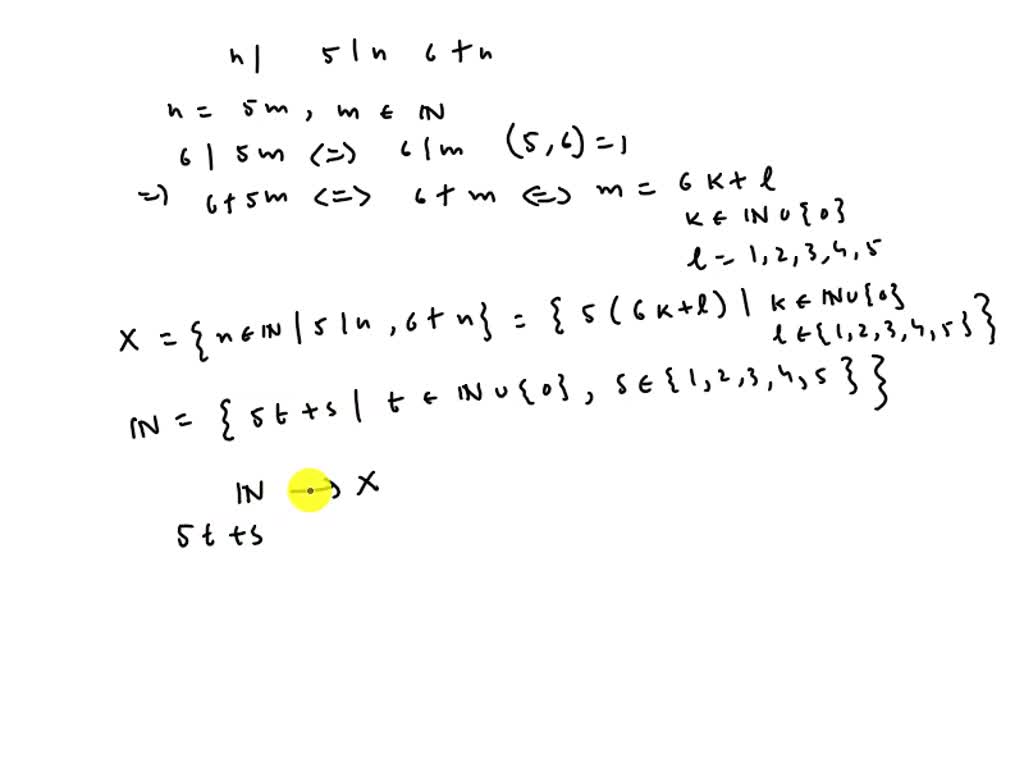 n| 5|n 6∤n
n = 5m, m ∈ ℕ
6 | 5m <=> 6|m (5,6)=1
=> 6∤5m <=> 6∤m <=> m = 6k+l
k ∈ ℕ ∪ {0}
l = 1,2,3,4,5
X = {n∈ℕ | 5|n, 6∤n} = {5(6k+l) | k ∈ ℕ∪{0}
l ∈ {1,2,3,4,5}}
ℕ = {5t+s | t ∈ ℕ ∪ {0}, s ∈ {1,2,3,4,5}}
ℕ → X
5t+s